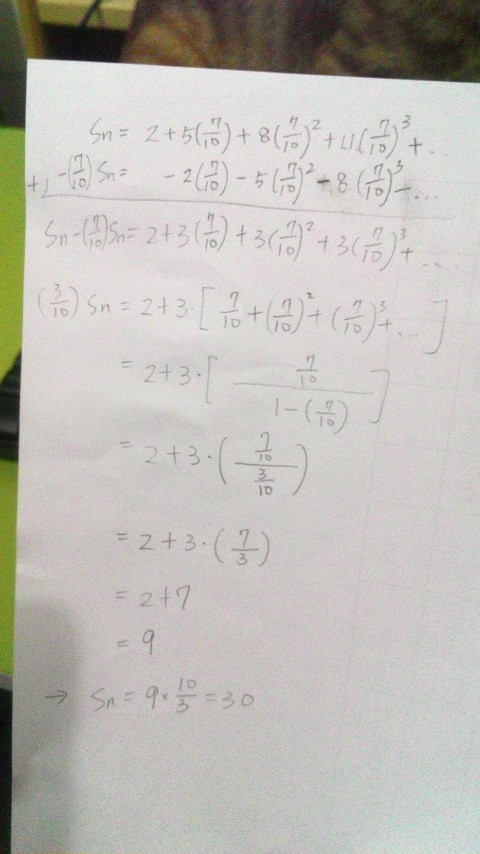 Sn = 2 + 5(7/10) + 8(7/10)² + 11(7/10)³ + ..
+) -(7/10) Sn = - 2(7/10) - 5(7/10)² - 8(7/10)³ - ...
Sn - (7/10)Sn = 2 + 3(7/10) + 3(7/10)² + 3(7/10)³ + ...
(3/10) Sn = 2 + 3 · [7/10 + (7/10)² + (7/10)³ + ...]
= 2 + 3 · [(7/10) / (1 - (7/10))]
= 2 + 3 · ((7/10) / (3/10))
= 2 + 3 · (7/3)
= 2 + 7
= 9
→ Sn = 9 × 10/3 = 30